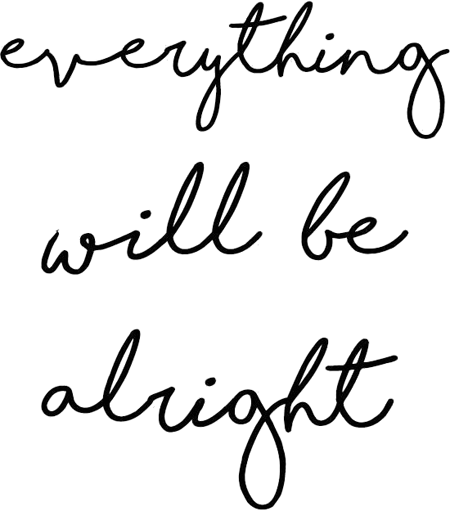 everything
will be
alright